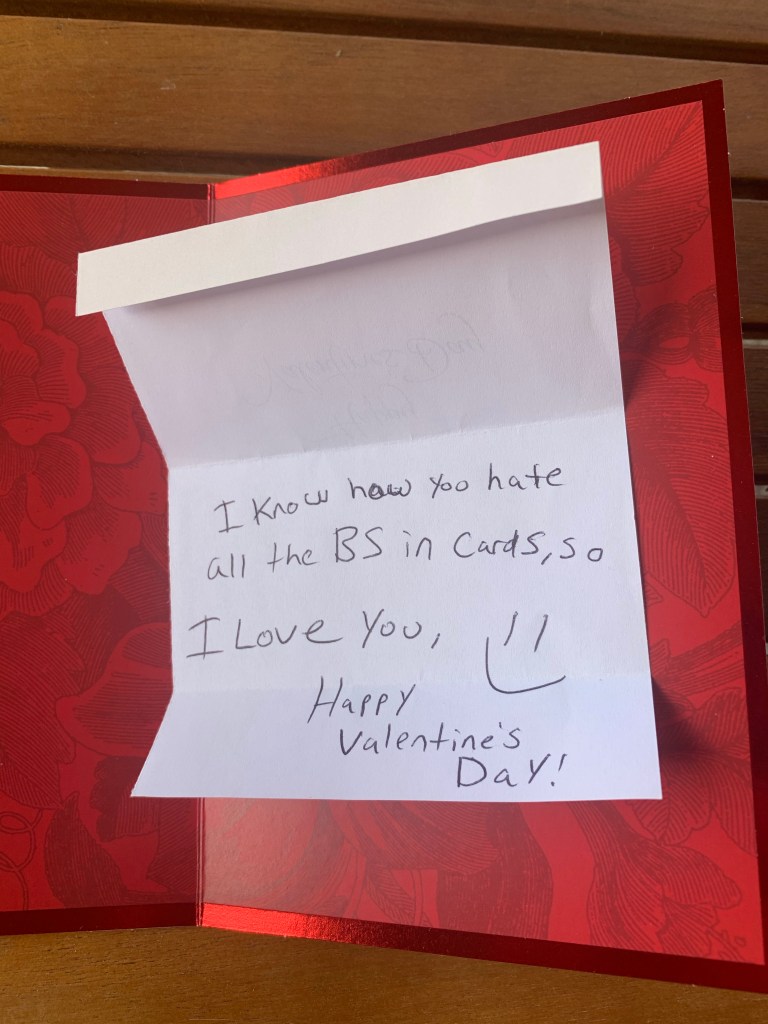 I know how you hate
all the BS in cards, so
I Love You,
Happy
Valentine's
Day!